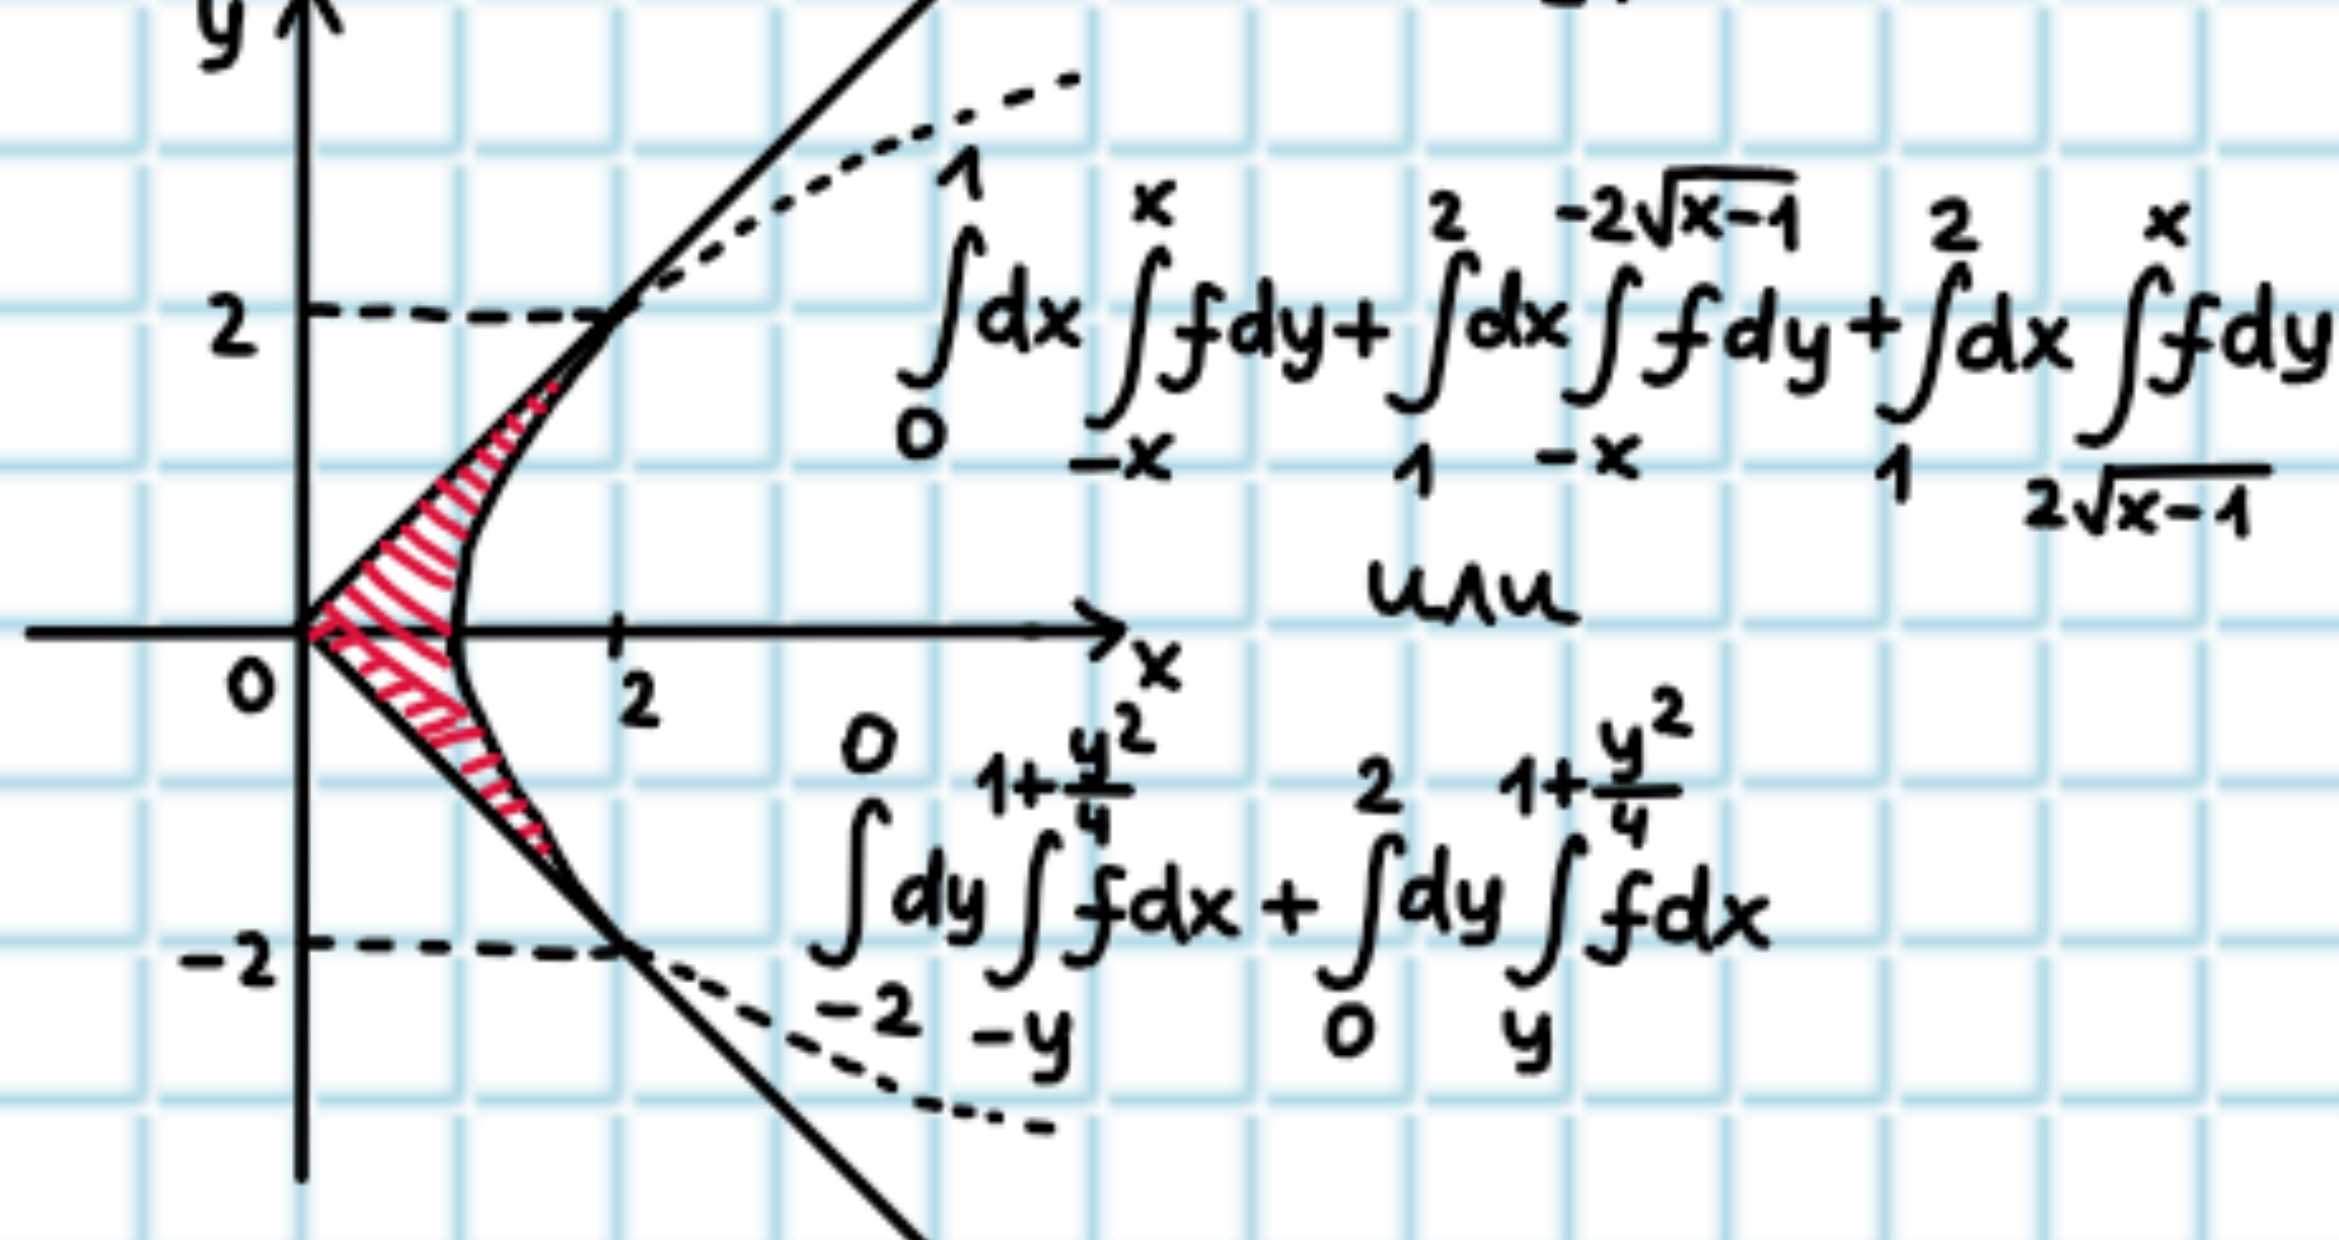 y
2
∫₀¹dx∫₋ₓˣfdy+∫₁²dx∫₋ₓ^(-2√(x-1))fdy+∫₁²dx∫_(2√(x-1))^x fdy
или
0
2
x
∫₋₂⁰dy∫_(-y)^(1+y²/4)fdx+∫₀²dy∫_y^(1+y²/4)fdx
-2